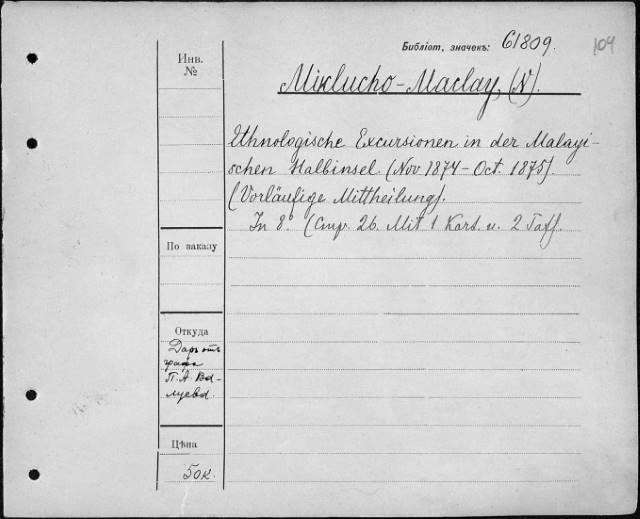 Библіот. значекъ: 61809.
104
Инв.
№
Miklucho-Maclay, (N).
Ethnologische Excursionen in der Malayi-
schen Halbinsel (Nov. 1874 – Oct. 1875).
(Vorläufige Mittheilung).
In 8º. (Стр. 26. Mit 1 Kart. u. 2 Taff.
По заказу
Откуда
Даръ отъ
графа
П. А. Ва-
луева
Цѣна
50к.